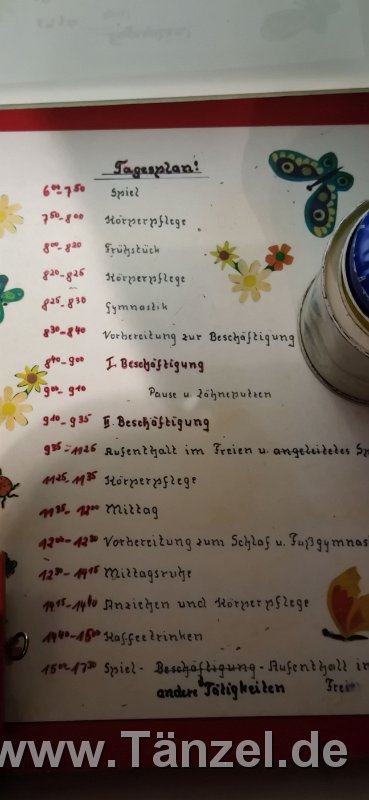 Tagesplan!
6⁰⁰-7⁵⁰ Spiel
7⁵⁰-8⁰⁰ Körperpflege
8⁰⁰-8²⁰ Frühstück
8²⁰-8²⁵ Körperpflege
8²⁵-8³⁰ Gymnastik
8³⁰-8⁴⁰ Vorbereitung zur Beschäftigung
8⁴⁰-9⁰⁰ I. Beschäftigung
9⁰⁰-9¹⁰ Pause u. Zähneputzen
9¹⁰-9³⁵ II. Beschäftigung
9³⁵-11²⁵ Aufenthalt im Freien u. angeleitetes Sp
11²⁵-11³⁵ Körperpflege
11³⁵-12⁰⁰ Mittag
12⁰⁰-12³⁰ Vorbereitung zum Schlaf u. Fußgymnas
12³⁰-14¹⁵ Mittagsruhe
14¹⁵-14⁴⁰ Anziehen und Körperpflege
14⁴⁰-15⁰⁰ Kaffeetrinken
15⁰⁰-17³⁰ Spiel- Beschäftigung - Aufenthalt im
andere Tätigkeiten Freien
www.Tänzel.de